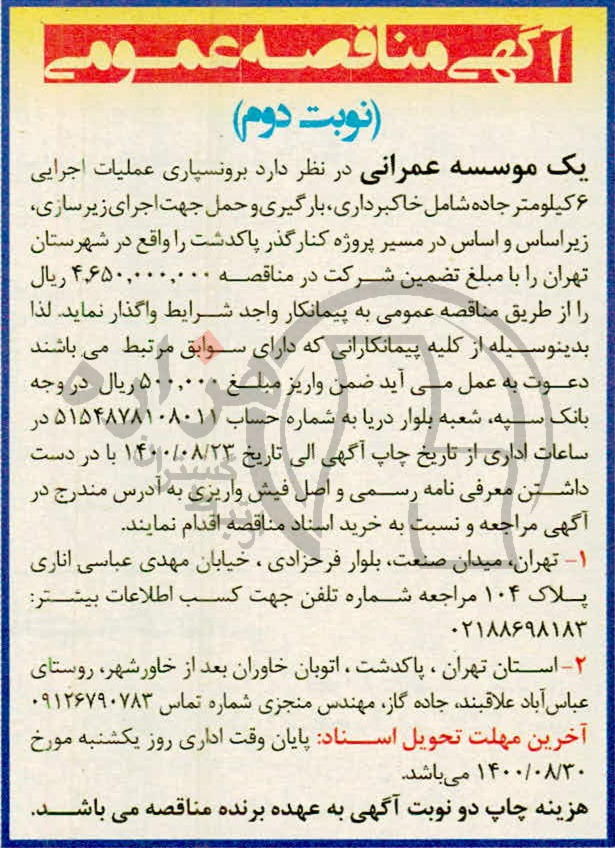 آگهی مناقصه عمومی
(نوبت دوم)
یک موسسه عمرانی در نظر دارد برونسپاری عملیات اجرایی
۶ کیلومتر جاده شامل خاکبرداری، بارگیری و حمل جهت اجرای زیرسازی،
زیراساس و اساس در مسیر پروژه کنارگذر پاکدشت را واقع در شهرستان
تهران را با مبلغ تضمین شرکت در مناقصه ۴,۶۵۰,۰۰۰,۰۰۰ ریال
را از طریق مناقصه عمومی به پیمانکار واجد شرایط واگذار نماید. لذا
بدینوسیله از کلیه پیمانکارانی که دارای سوابق مرتبط می باشند
دعوت به عمل می آید ضمن واریز مبلغ ۵۰۰,۰۰۰ ریال در وجه
بانک سپه، شعبه بلوار دریا به شماره حساب ۵۱۵۴۸۷۸۱۰۸۰۱۱ در
ساعات اداری از تاریخ چاپ آگهی الی تاریخ ۱۴۰۰/۰۸/۲۳ با در دست
داشتن معرفی نامه رسمی و اصل فیش واریزی به آدرس مندرج در
آگهی مراجعه و نسبت به خرید اسناد مناقصه اقدام نمایند.
۱- تهران، میدان صنعت، بلوار فرحزادی ، خیابان مهدی عباسی اناری
پلاک ۱۰۴ مراجعه شماره تلفن جهت کسب اطلاعات بیشتر:
۰۲۱۸۸۶۹۸۱۸۳
۲- استان تهران ، پاکدشت ، اتوبان خاوران بعد از خاورشهر، روستای
عباس‌آباد علاقبند، جاده گاز، مهندس منجزی شماره تماس ۰۹۱۲۶۷۹۰۷۸۳
آخرین مهلت تحویل اسناد: پایان وقت اداری روز یکشنبه مورخ
۱۴۰۰/۰۸/۳۰ می‌باشد.
هزینه چاپ دو نوبت آگهی به عهده برنده مناقصه می باشد.